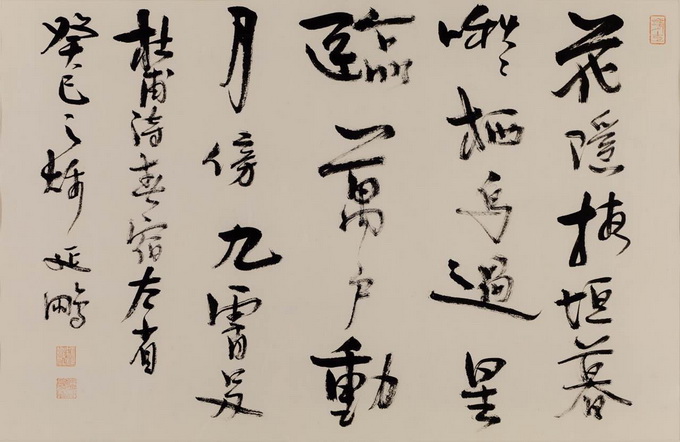 花隱掖垣暮
啾〻栖鳥過星
臨萬户動
月傍九霄多
杜甫詩春宿左省
癸巳之秋 延鵬